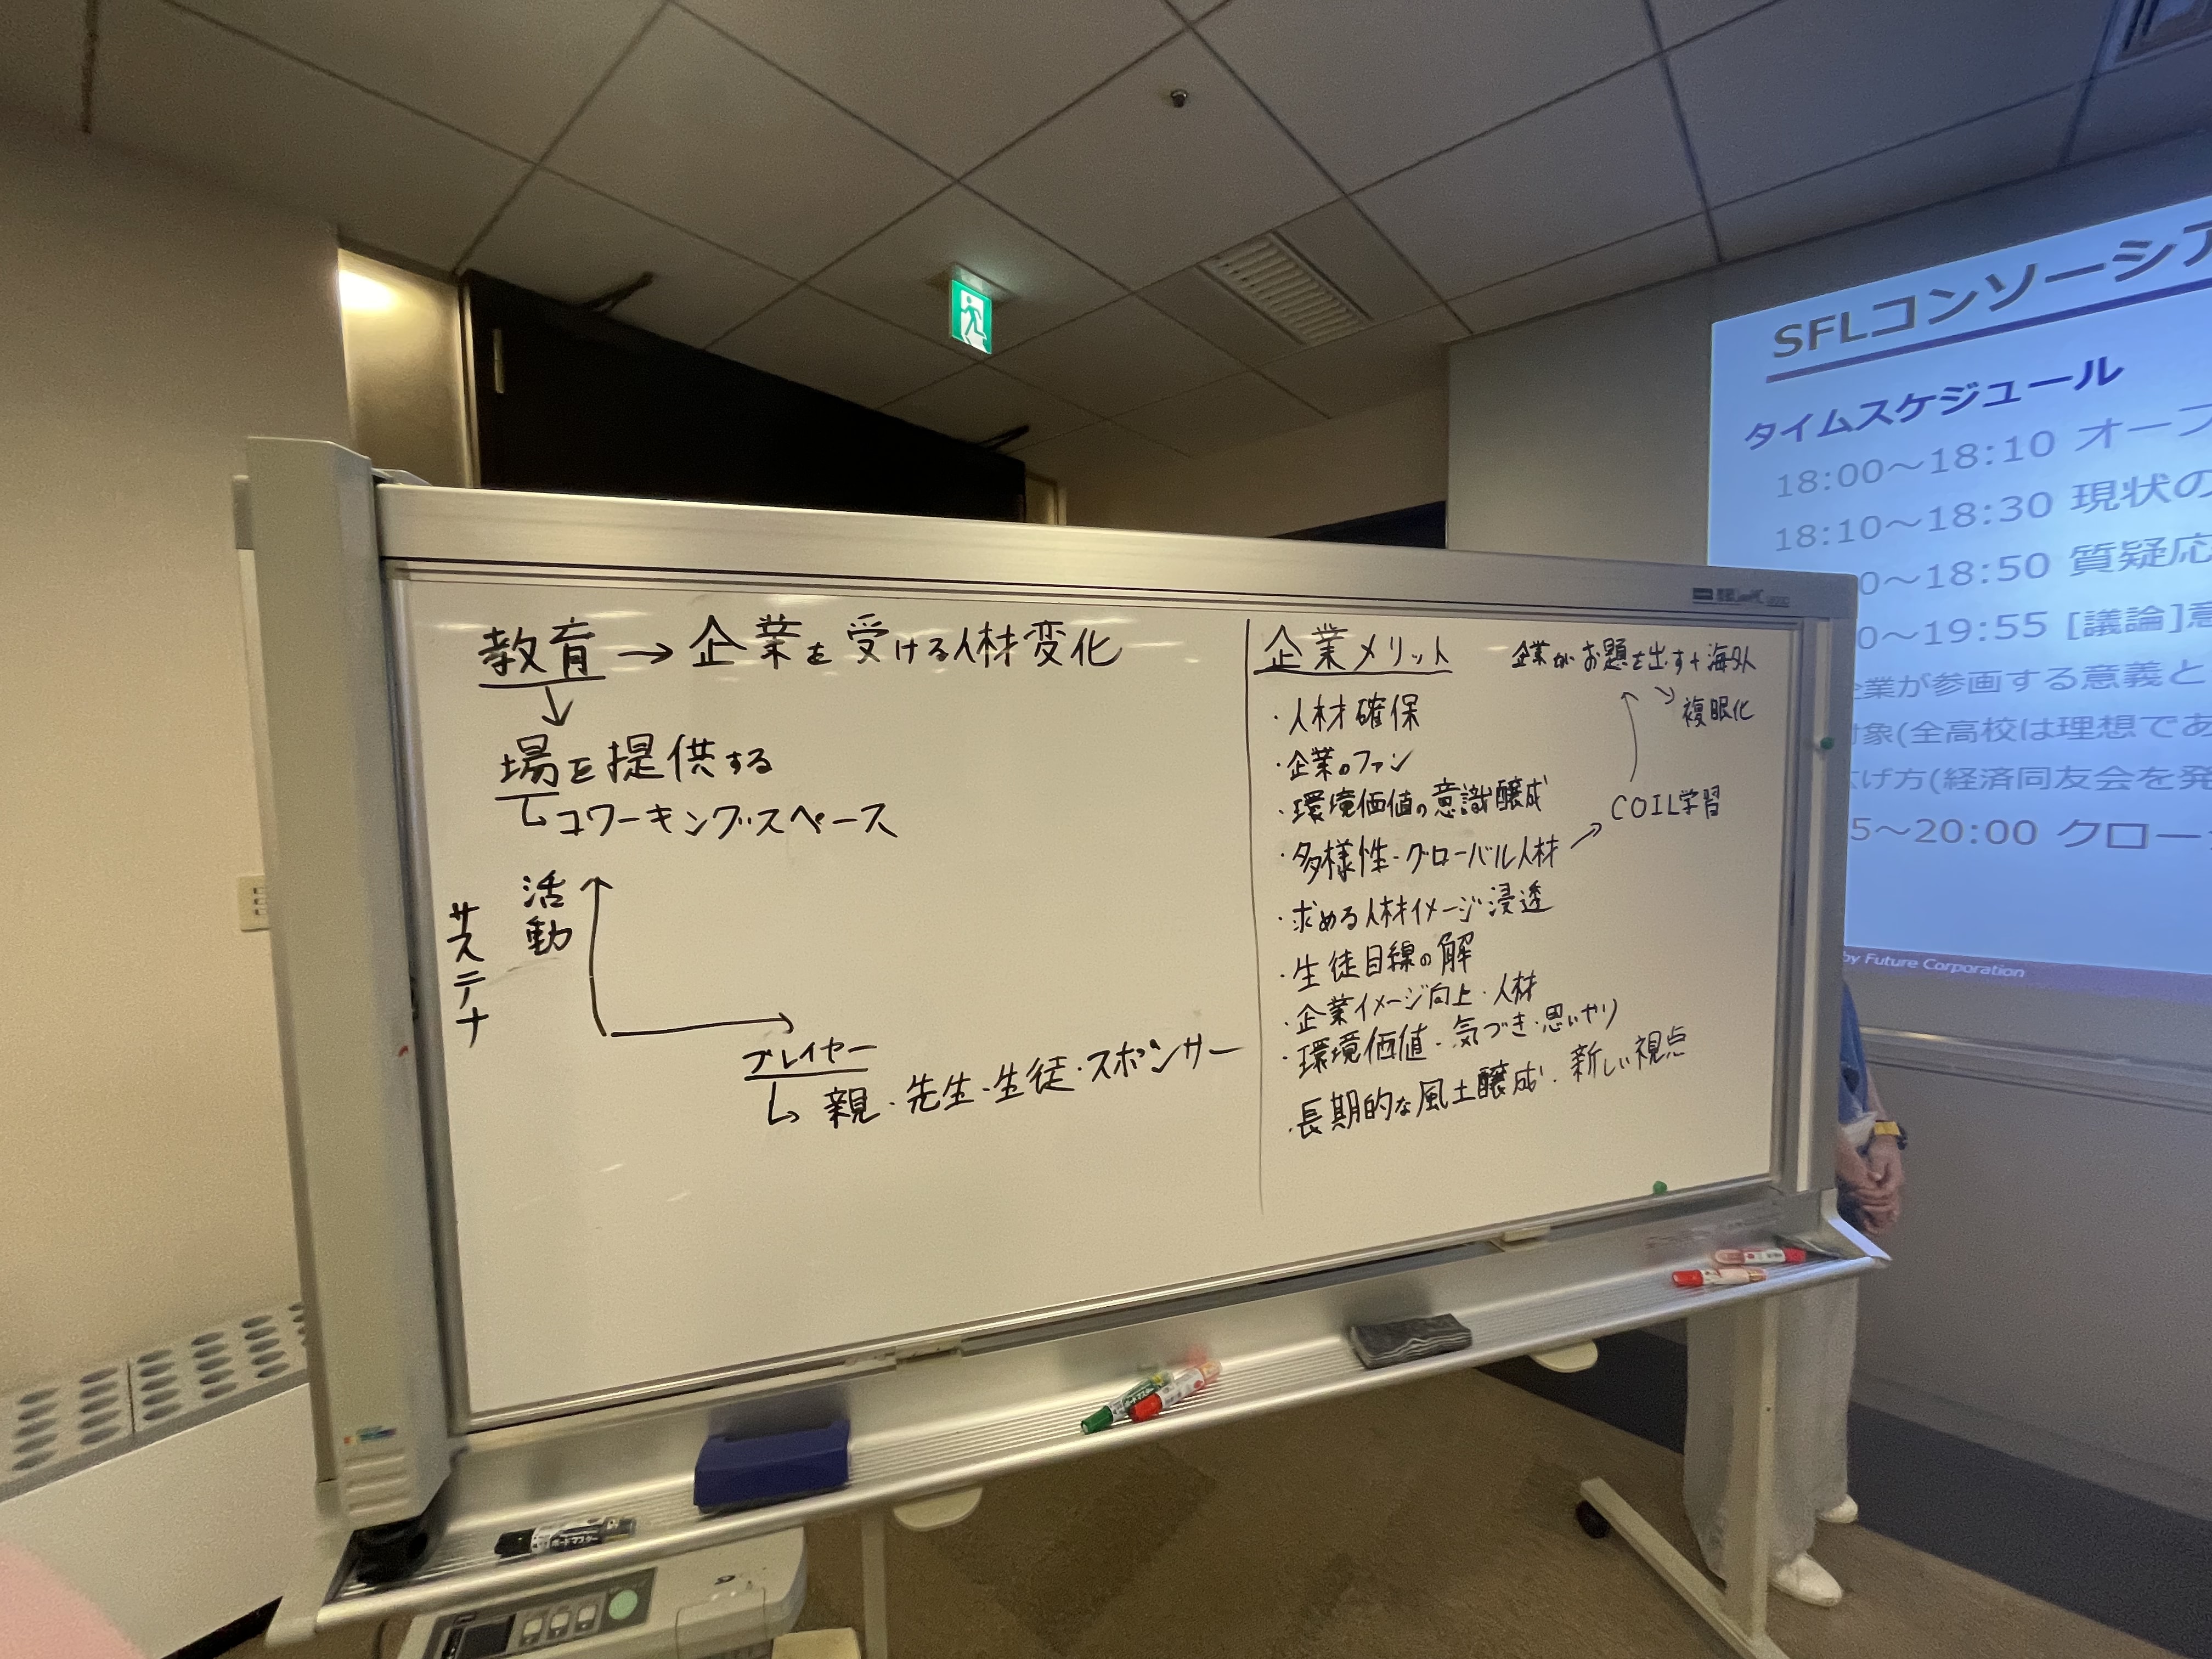 教育→企業を受ける人材変化
↓
場を提供する
↳コワーキングスペース
サステナ
活動
プレイヤー
↳親・先生・生徒・スポンサー
企業メリット
・人材確保
・企業のファン
・環境価値の意識醸成
・多様性・グローバル人材
・求める人材イメージ浸透
・生徒目線の解
・企業イメージ向上・人材
・環境価値・気づき・思いやり
・長期的な風土醸成・新しい視点
企業がお題を出す+海外
複眼化
COIL学習
SFLコンソーシア
タイムスケジュール
18:00～18:10 オープ
18:10～18:30 現状の
0～18:50 質疑応
0～19:55 [議論]意
企業が参画する意義と
対象(全高校は理想であ
広げ方(経済同友会を発
5～20:00 クロー
by Future Corporation